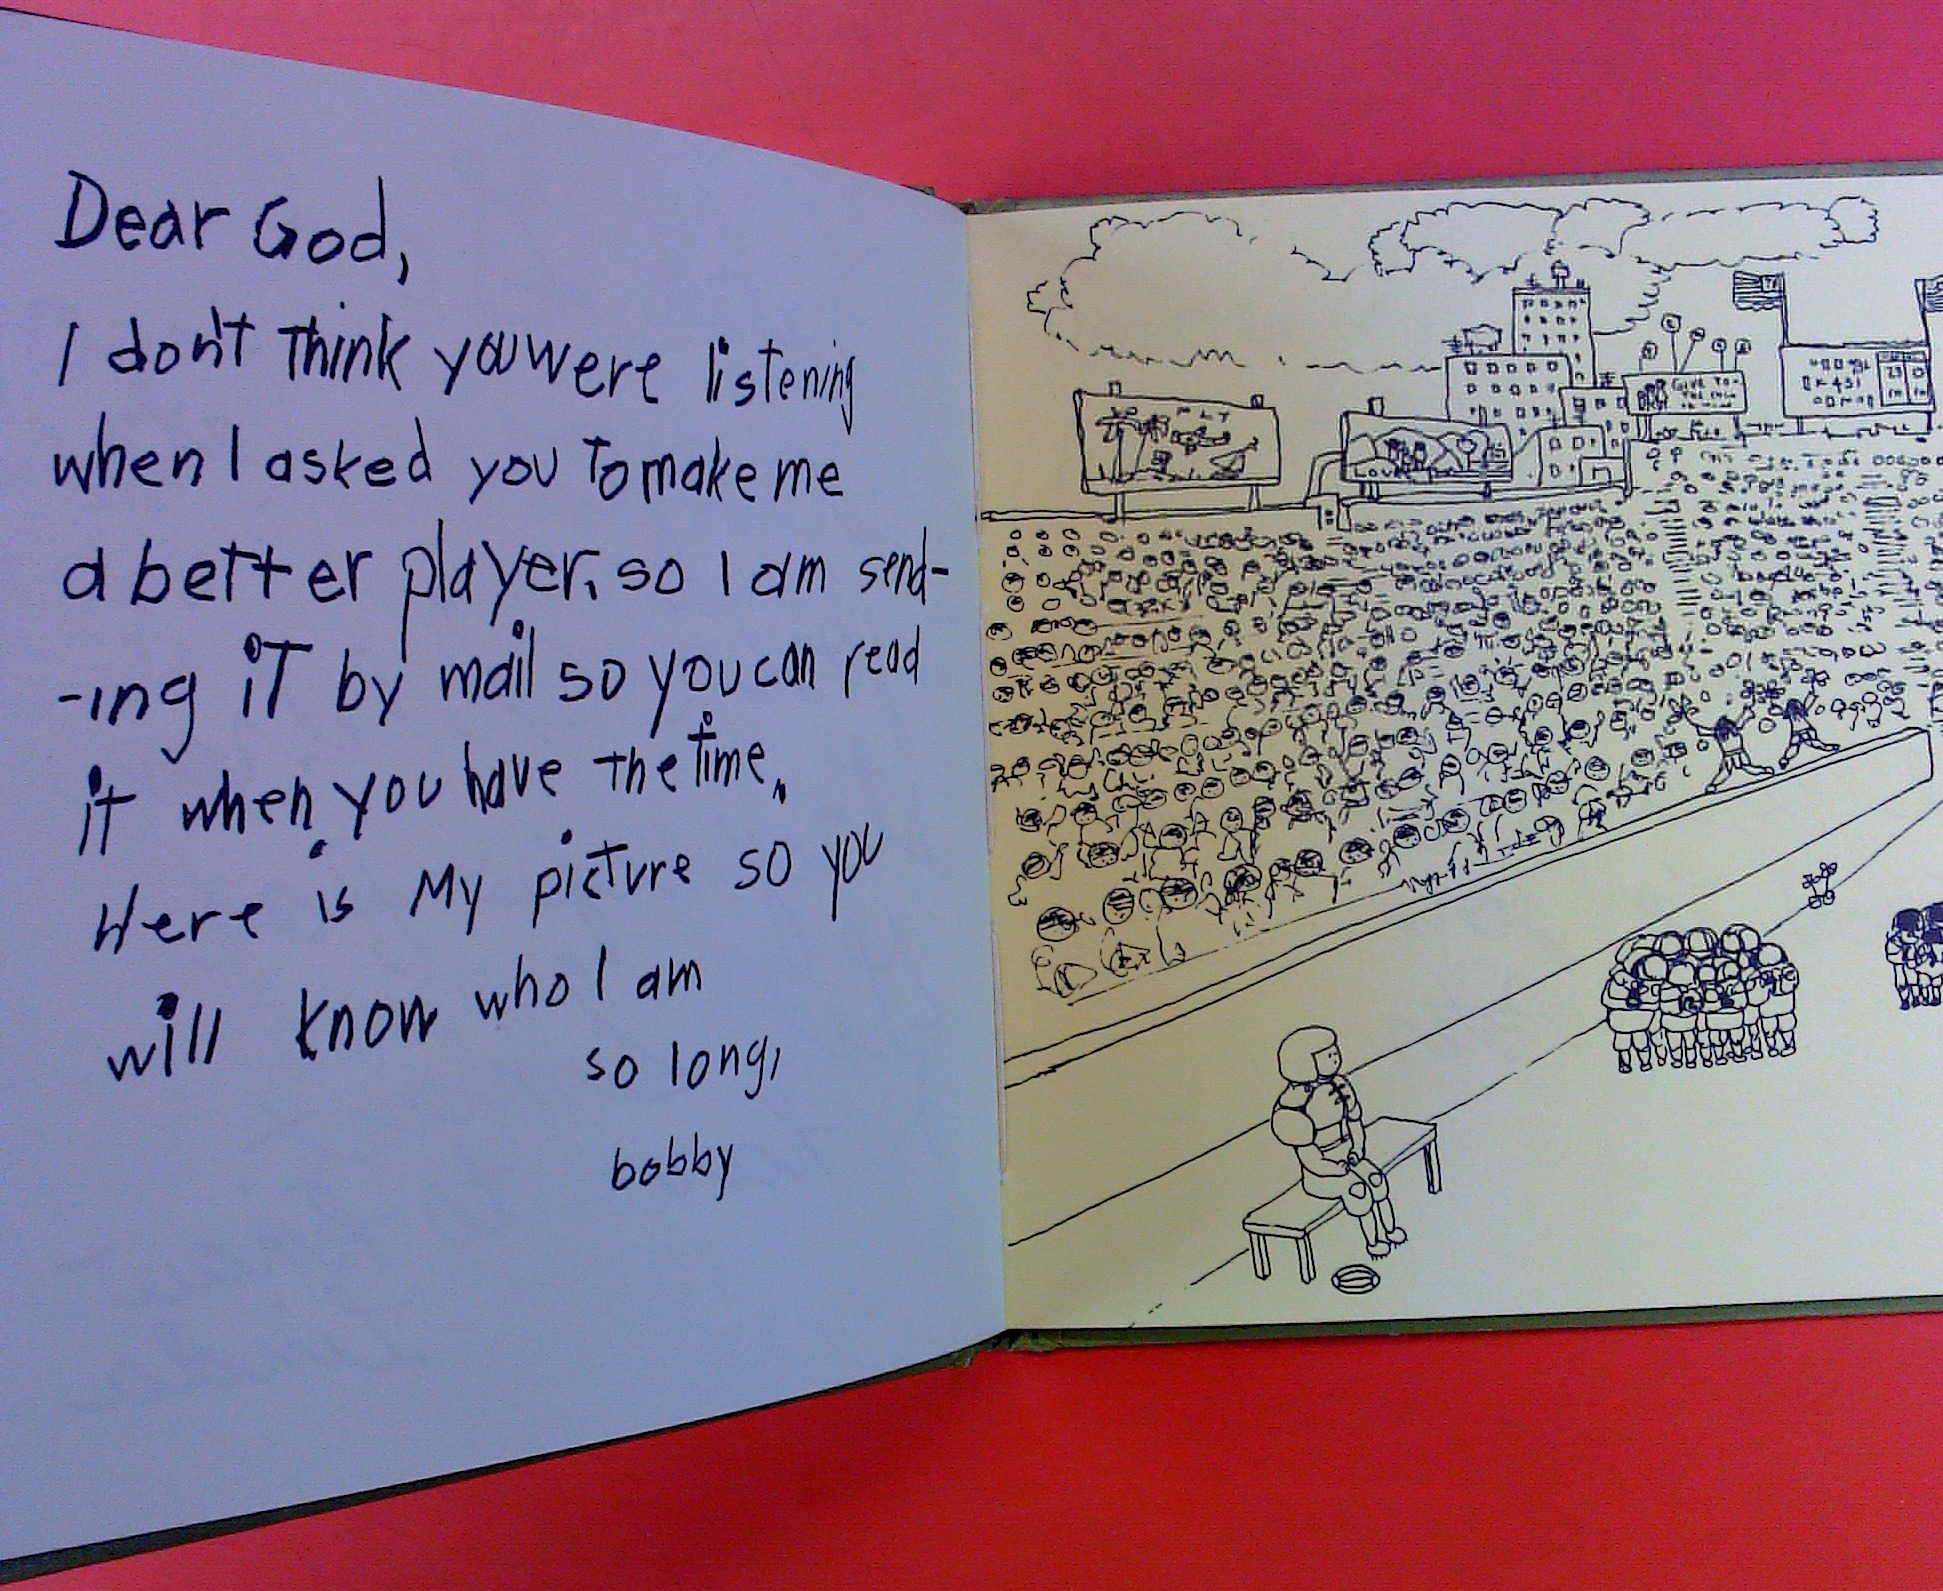 Dear God,
I don't think you were listening
when I asked you to make me
a better player. so I am send-
-ing it by mail so you can read
it when you have the time.
Here is My picture so you
will know who I am
so long,
bobby
FLY
LOVE
GIVE TO